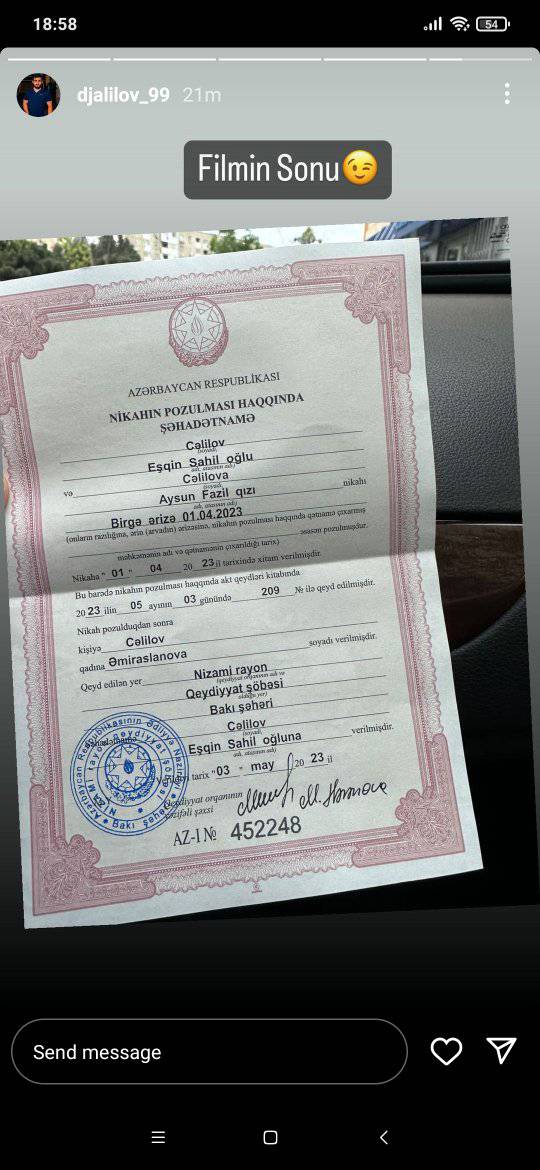 18:58
54
djalilov_99 21m
Filmin Sonu😉
AZƏRBAYCAN RESPUBLİKASI
NİKAHIN POZULMASI HAQQINDA
ŞƏHADƏTNAMƏ
Cəlilov
(soyadı,
Eşqin Sahil oğlu
adı, atasının adı)
və Cəlilova
(soyadı,
Aysun Fazil qızı nikahı
adı, atasının adı)
Birgə ərizə 01.04.2023
(onların razılığına, ərin (arvadın) ərizəsinə, nikahın pozulması haqqında qətnamə çıxarmış
məhkəmənin adı və qətnamənin çıxarıldığı tarix) əsasən pozulmuşdur.
Nikaha "01" 04 2023 il tarixində xitam verilmişdir.
Bu barədə nikahın pozulması haqqında akt qeydləri kitabında
2023 ilin 05 ayının 03 günündə 209 № ilə qeyd edilmişdir.
Nikah pozulduqdan sonra
kişiyə Cəlilov
qadına Əmiraslanova soyadı verilmişdir.
Qeyd edilən yer Nizami rayon
(qeydiyyat orqanının adı və
Qeydiyyat şöbəsi
olduğu yer)
Bakı şəhəri
Cəlilov
(soyadı,
Eşqin Sahil oğluna verilmişdir.
adı, atasının adı)
tarix "03" may 2023 il
Qeydiyyat orqanının
vəzifəli şəxsi
AZ-I № 452248
Send message